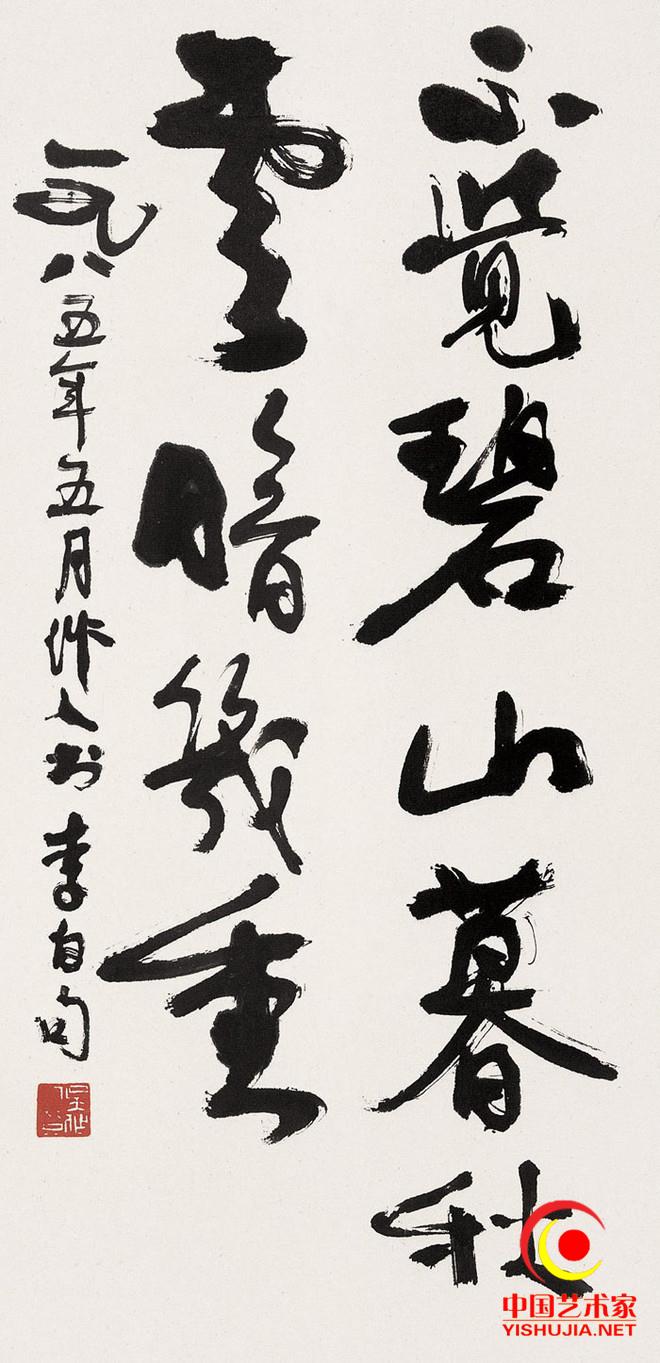 不觉碧山暮秋
云暗幾重
一九八五年五月作人书李白句
中国艺术家
YISHUJIA.NET